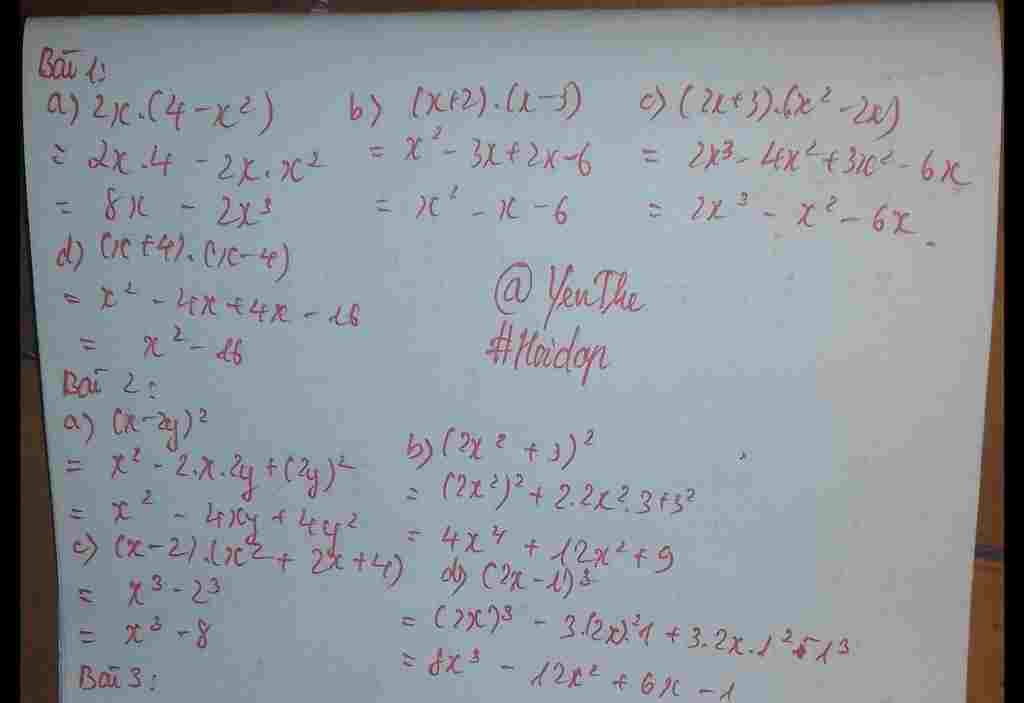 Bài 1:
a) 2x.(4-x²)
= 2x.4 - 2x.x²
= 8x - 2x³
b) (x+2).(x-3)
= x² - 3x + 2x - 6
= x² - x - 6
c) (2x+3).(x² - 2x)
= 2x³ - 4x² + 3x² - 6x
= 2x³ - x² - 6x.
d) (x+4).(x-4)
= x² - 4x + 4x - 16
= x² - 16
@YenThe
#Hoidap
Bài 2:
a) (x-2y)²
= x² - 2.x.2y + (2y)²
= x² - 4xy + 4y²
b) (2x² + 3)²
= (2x²)² + 2.2x².3 + 3²
= 4x⁴ + 12x² + 9
c) (x-2).(x² + 2x + 4)
= x³ - 2³
= x³ - 8
d) (2x - 1)³
= (2x)³ - 3.(2x)².1 + 3.2x.1² - 1³
= 8x³ - 12x² + 6x - 1
Bài 3: